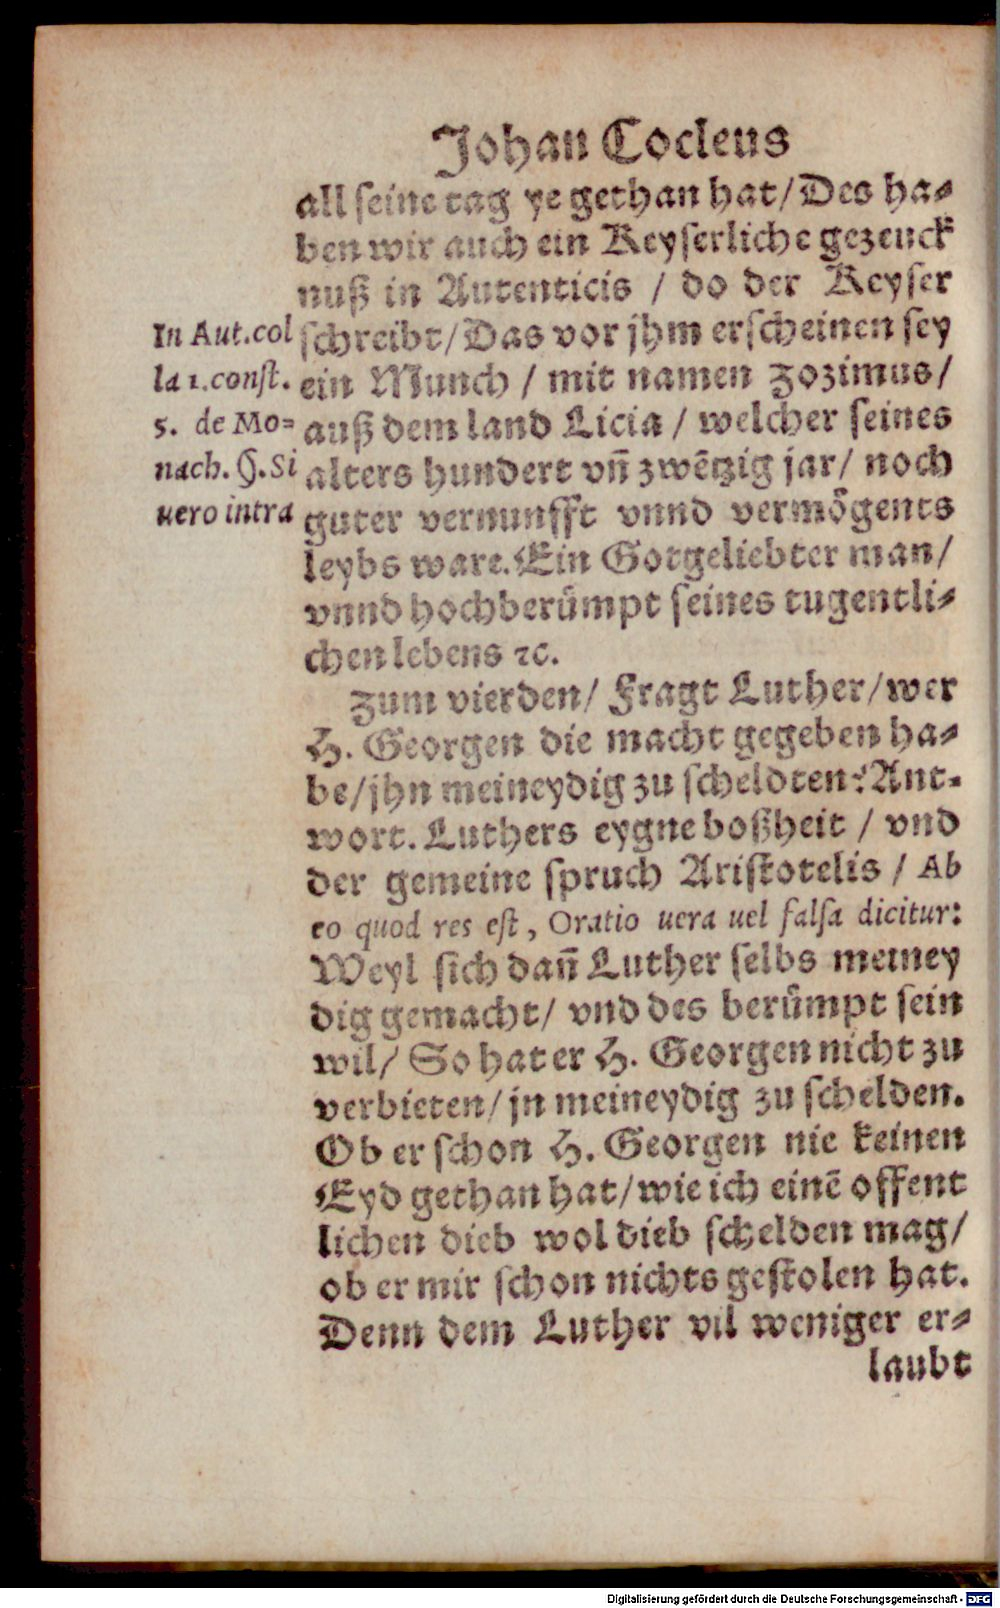 Johan Cocleus
all seine tag ye gethan hat/ Des ha⸗
ben wir auch ein Keyserliche gezeuck
nuß in Autenticis / do der Keyser
schreibt/ Das vor jhm erscheinen sey
ein Munch / mit namen Zozimus/
auß dem land Licia / welcher seines
alters hundert vñ zwẽtzig jar/ noch
guter vernunfft vnnd vermögents
leybs ware. Ein Gotgeliebter man/
vnnd hochberümpt seines tugentli⸗
chen lebens ⁊c.
In Aut. col
la 1. const.
5. de Mo⸗
nach. §. Si
uero intra
Zum vierden/ Fragt Luther/ wer
H. Georgen die macht gegeben ha⸗
be/ jhn meineydig zu scheldten? Ant⸗
wort. Luthers eygne boßheit / vnd
der gemeine spruch Aristotelis / Ab
eo quod res est, Oratio uera uel falsa dicitur:
Weyl sich dañ Luther selbs meiney
dig gemacht/ vnd des berümpt sein
wil/ So hat er H. Georgen nicht zu
verbieten/ jn meineydig zu schelden.
Ob er schon H. Georgen nie keinen
Eyd gethan hat/ wie ich einẽ offent
lichen dieb wol dieb schelden mag/
ob er mir schon nichts gestolen hat.
Denn dem Luther vil weniger er⸗
laubt
Digitalisierung gefördert durch die Deutsche Forschungsgemeinschaft - DFG